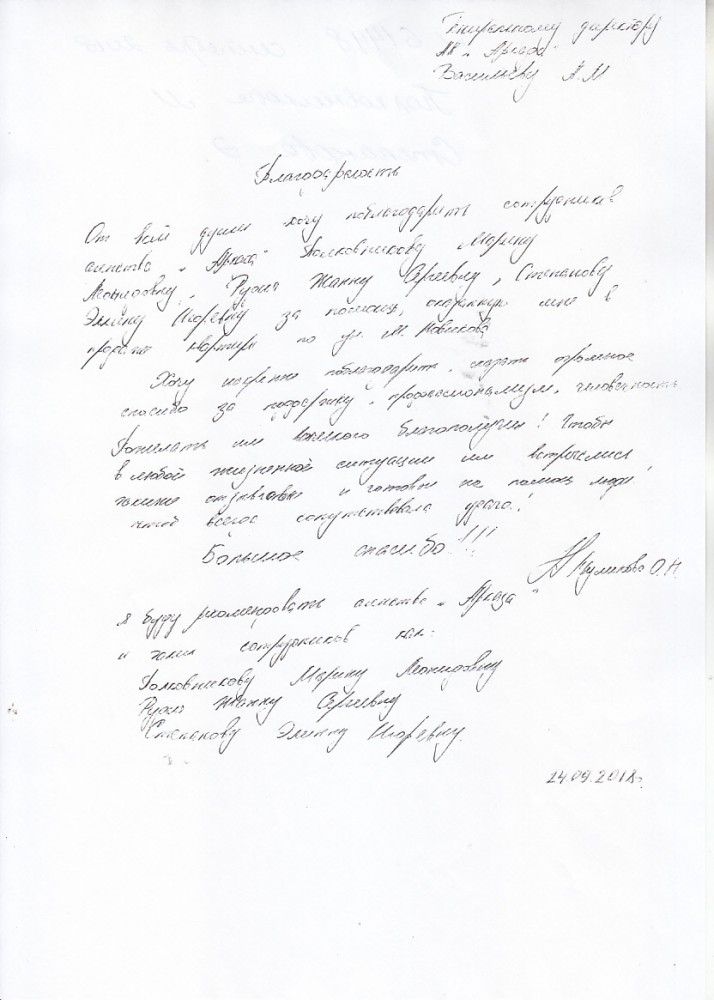 Генеральному директору
АН „Аркада"
Васильеву А.М
Благодарность
От всей души хочу поблагодарить сотрудников
агенства „Аркада" Полковникову Марину
Леонидовну, Жанну Сергеевну, Степанову
Элину Игоревну за помощь, оказанную мне в
продаже квартиры по ул. М. Новикова
Хочу искренне поблагодарить, сказать огромное
спасибо за поддержку, профессионализм, человечность
Пожелать им всяческого благополучия! Чтобы
в любой жизненной ситуации им встречались
такие отзывчивые и готовые на помощь люди!
чтоб всегда сопутствовала удача!
Большое спасибо!!!
Куликова О.Н.
Я буду рекомендовать агенство „Аркада"
и таких сотрудников как:
Полковникову Марину Леонидовну
Жанну Сергеевну
Степанову Элину Игоревну.
24.09.2018г.